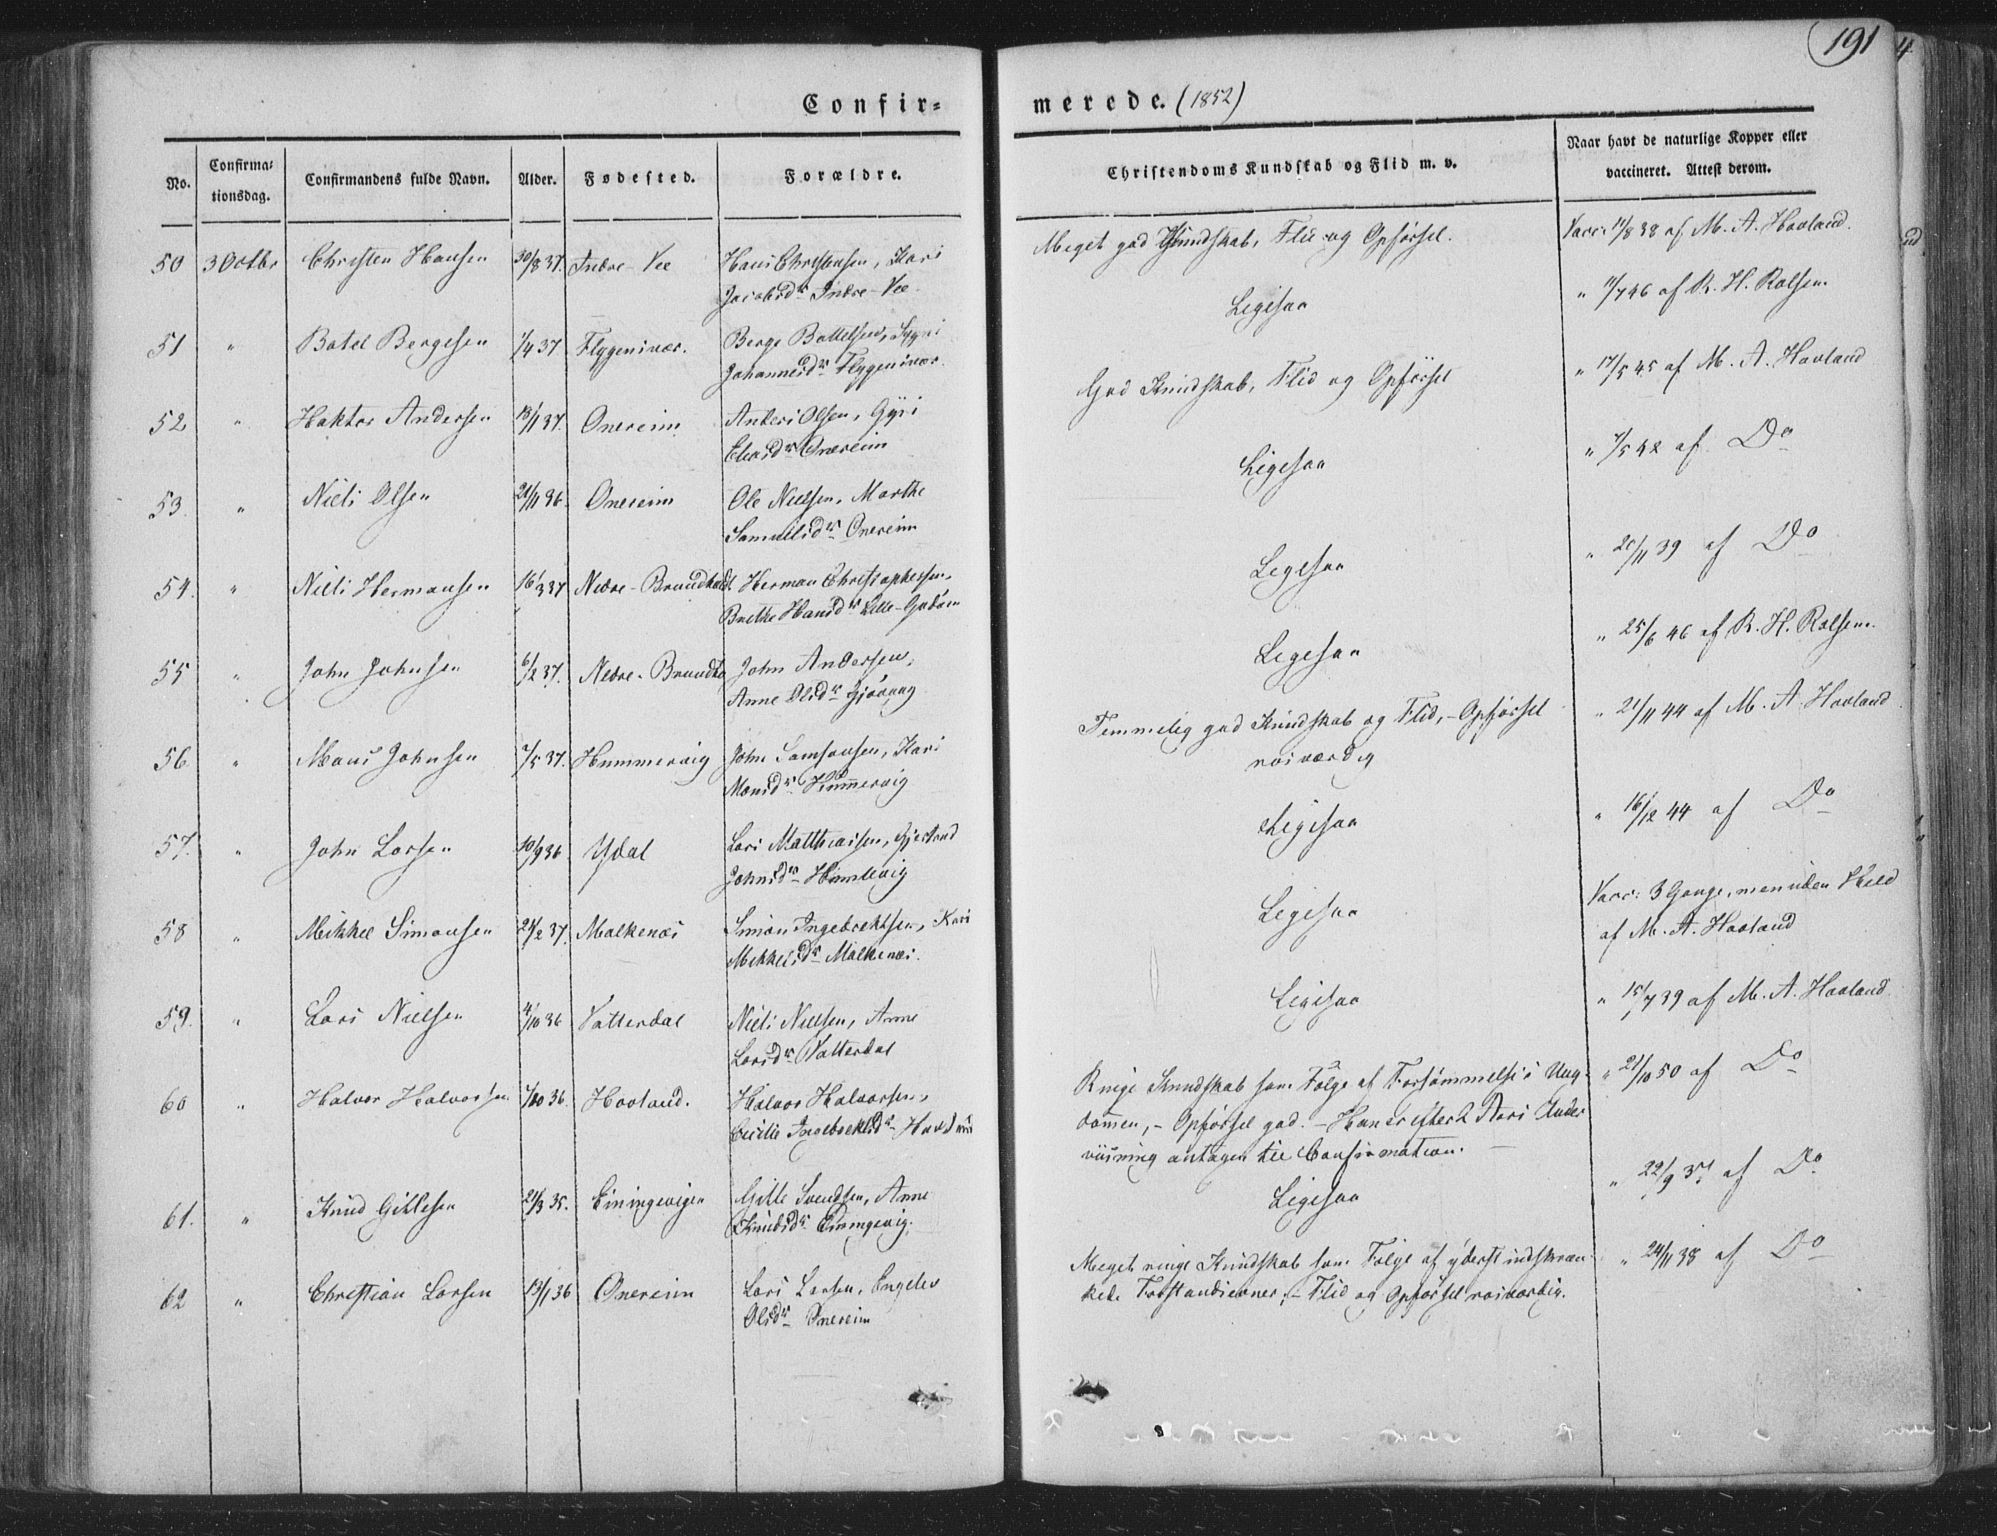 191
Confir-
merede. (1852)
No.
Confirma-
tionsdag.
Confirmandens fulde Navn.
Alder.
Fødested.
Forældre.
Christendoms Kundskab og Flid m. v.
Naar havt de naturlige Kopper eller
vaccineret. Attest derom.
50 3 Octbr Christen Hansen 30/8 37. Indre-Vee Hans Christensen, Kari
Jacobsdr Indre-Vee.
Meget god Kundskab, Flid og Opførsel. Vacc: 11/8 38 af M. A. Havland.
51 " Botel Bergesen 1/4 37 Flygenivær. Berge Bottelsen, Sygni
Johannesdr Flygenivær.
Ligesaa " 11/7 46 af R. H. Rolfsen.
52 " Haktor Andersen 13/1 37. Onereim Anders Olsen, Gyri
Eliasdr Onereim
God Kundskab, Flid og Opførsel " 17/5 45 af M. A. Havland
53. " Niels Olsen 21/11 36. Onereim Ole Nielsen, Marthe
Samuelsdr Onereim
Ligesaa " 7/5 42 af Do
54. " Niels Hermansen 16/3 37 Nedre-Brundtland Herman Christophersen,
Brethe Hansdr Lille-
Ligesaa " 20/11 39 af Do
55 " John Johnsen 6/2 37. Nedre-Brundtla John Andersen,
Anne Olsdr
Ligesaa " 25/6 46 af R. H. Rolfsen.
56. " Mons Johnsen 7/5 37. Hummervig John Samsonsen, Kari
Monsdr Hummervig
Temmelig god Kundskab og Flid, - Opførsel
rosværdig
" 21/11 44 af M. A. Havland
57. " John Larsen 30/9 36 Ydal Lars Matthiassen, Gjertrud
Johnsdr
Ligesaa " 16/12 44 af Do
58 " Mikkel Simonsen 21/2 37. Malkenæs Simon Ingebrektsen, Kari
Mikkelsdr Malkenæs.
Ligesaa Vacc: 3 Gange, men uden Held
af M. A. Havland
59. " Lars Nielsen 4/10 36 Vatterdal Niels Nielsen, Anne
Larsdr Vatterdal
Ligesaa " 15/7 39 af M. A. Havland
60 " Halvor Halvorsen 7/10 36. Havland. Halvor Halvorsen,
Cecilie Ingebrektsdr
Ringe Kundskab som Følge af Forsømmelse i Ung-
dommen, - Opførsel god. - Han er efter 2 Aars Under
viisning antagen til Confirmation.
" 21/10 50 af Do
61. " Knud Gitlesen 21/3 35. Einingevigen Gitle Svendsen, Anne
Knudsdr Einingevig.
Ligesaa " 22/9 37 af Do
62 " Christian Larsen 13/1 36 Onereim Lars Larsen, Engelev
Olsdr Onereim
Meget ringe Kundskab som Følge af yderst indskræn-
kede Forstandsevner, - Flid og Opførsel rosværdig.
" 24/11 38 af Do